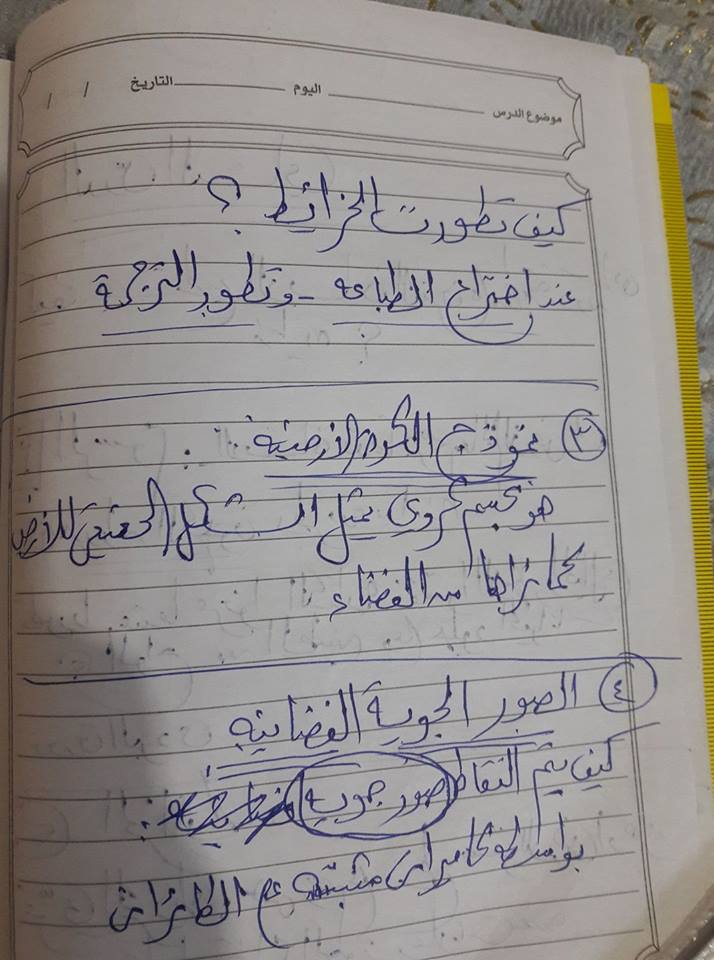 موضوع الدرس اليوم التاريخ / /
كيف تطورت الخرائط ؟
عند اختراع الطباعه - وتطور الترجمة
٣ نموذج الكره الأرضية
هو مجسم كروي يمثل الشكل الحقيقي للأرض
كما نراها من الفضاء
٤ الصور الجوية الفضائيه
كيف يتم التقاط صور جويه :
بواسطة كاميرات مثبته على الطائرات